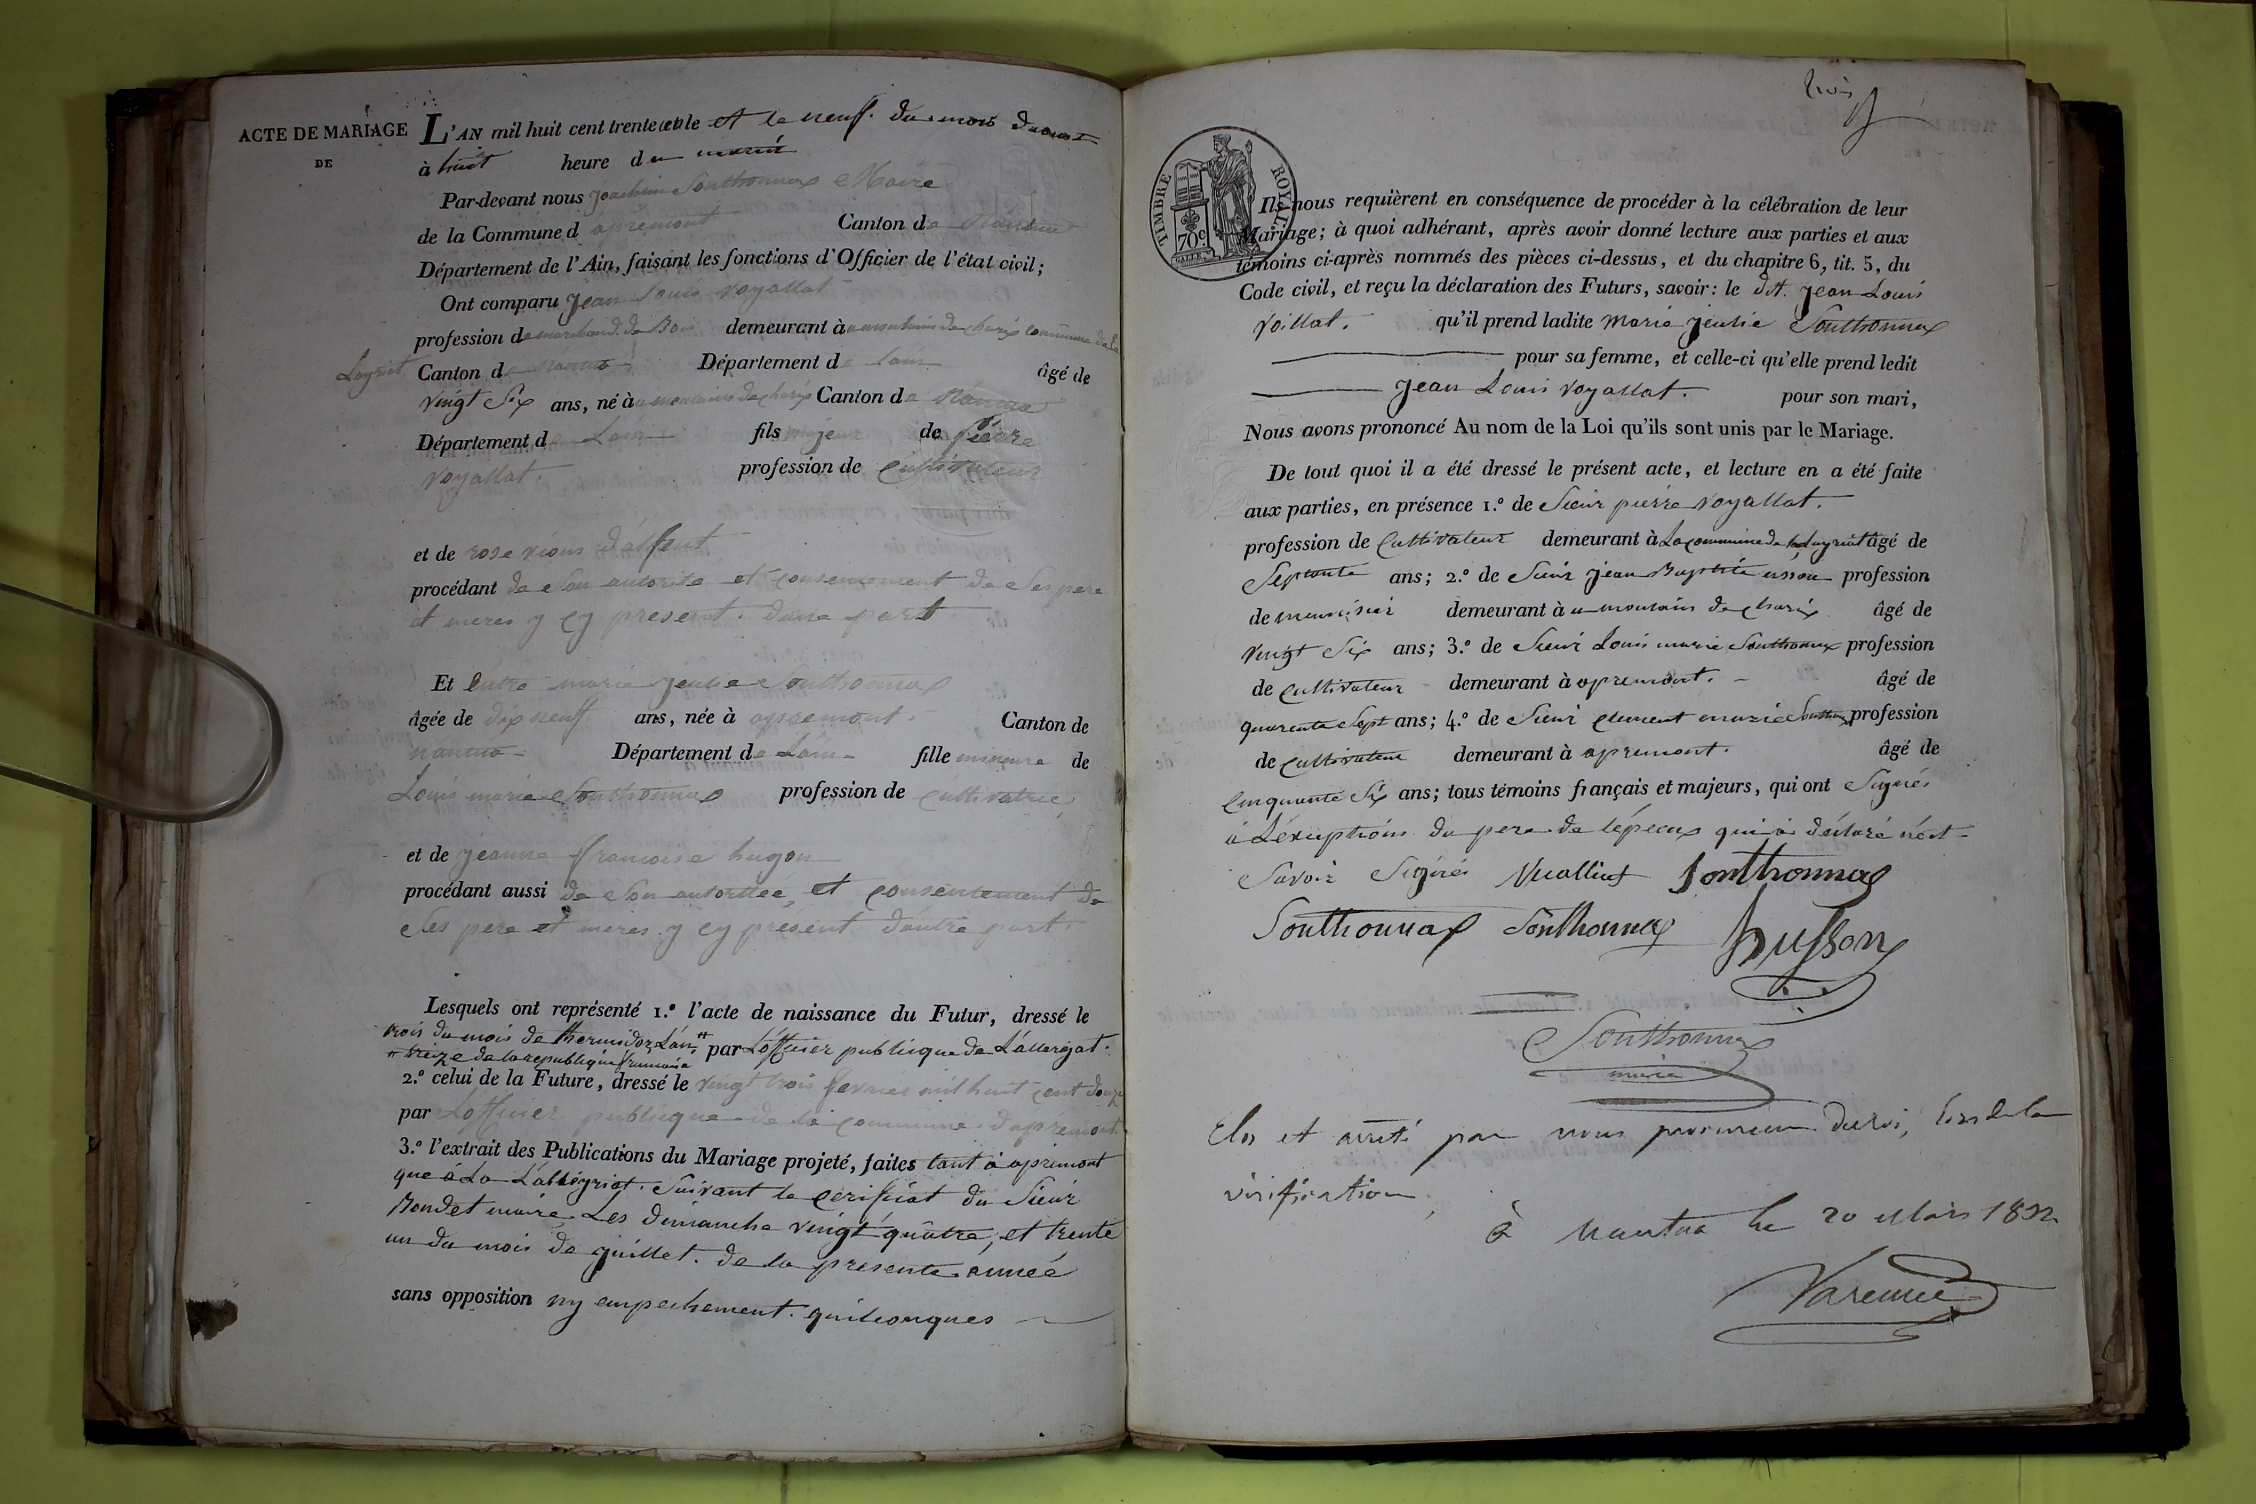 ACTE DE MARIAGE
DE
L'AN mil huit cent trente et le neuf du mois
à huit heure du
Par-devant nous Joachim Sonthonnax Maire
de la Commune d apremont Canton de Nantua
Département de l'Ain, faisant les fonctions d'Officier de l'état civil;
Ont comparu Jean Louis voyallat
profession de marchand de Bois demeurant à commune de la
Leyriat Canton de nantua Département de Lain âgé de
vingt Six ans, né à Canton de Nantua
Département de Lain fils majeur de pierre
voyallat. profession de Cultivateur
et de rose
procédant de Son autorité et consentement de Ses pere
et meres y cy present. dune part
Et Entre marie jeulie Sonthonnax
âgée de dix neuf ans, née à apremont. Canton de
nantua Département de Lain fille mineure de
Louis marie Sonthonnax profession de cultivatrice
et de jeanne francoise hugon
procédant aussi de Son autoritée, et consentement de
Ses pere et meres y cy présent dautre part.
Lesquels ont représenté 1.º l'acte de naissance du Futur, dressé le
trois du mois de thermidor Lan par Lofficier publique de
treize de la republique francaise
2.º celui de la Future, dressé le vingt trois fevrier mil huit cent douze
par Lofficier publique de la commune dapremont.
3.º l'extrait des Publications du Mariage projeté, faites tant à apremont
que à La Suivant le du Sieur
Bondet maire Les dimanche vingt quatre, et trente
un du mois de juillet. de la presente année
sans opposition ny empechement. quelconques
TIMBRE ROYAL
70c
Ils nous requièrent en conséquence de procéder à la célébration de leur
Mariage; à quoi adhérant, après avoir donné lecture aux parties et aux
témoins ci-après nommés des pièces ci-dessus, et du chapitre 6, tit. 5, du
Code civil, et reçu la déclaration des Futurs, savoir: le dit. Jean Louis
Voillat. qu'il prend ladite Marie Jeulie Sonthonnax
pour sa femme, et celle-ci qu'elle prend ledit
Jean Louis Voyallat. pour son mari,
Nous avons prononcé Au nom de la Loi qu'ils sont unis par le Mariage.
De tout quoi il a été dressé le présent acte, et lecture en a été faite
aux parties, en présence 1.º de Sieur pierre Voyallat.
profession de Cultivateur demeurant à La commune de âgé de
Septente ans; 2.º de Sieur Jean Baptiste usson profession
de menuisier demeurant à u moulain de charix âgé de
vingt Six ans; 3.º de Sieur Louis marie Sonthonnax profession
de cultivateur demeurant à apremont. âgé de
quarente Sept ans; 4.º de Sieur clement marie Sonthonnax profession
de cultivateur demeurant à apremont. âgé de
Cinquante Six ans; tous témoins français et majeurs, qui ont Signés
à Léxeption du pere de lépoux qui à déclaré
Savoir Signés Sonthonnax
Sonthonnax Sonthonnax husson
Sonthonnax
maire
Clos et arrêté par nous procureur du roi, lors de la
vérification,
à Nantua le 20 Mars 1832
Varenne